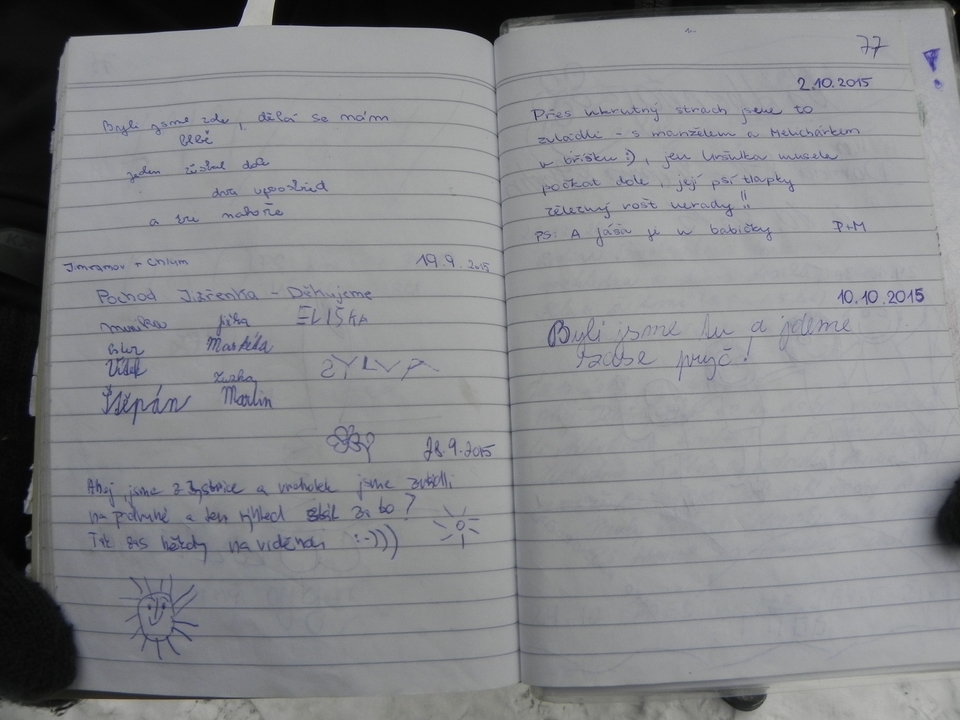 Byli jsme zde, dělá se nám
blbě
jeden zůstal dole
dva uprostřed
a tři nahoře
19.9.2015
Pochod Jizřenka - Děkujeme
Jirka ELIŠKA
Markéta
Vítek SYLVA
Štěpán Martin
28.9.2015
Ahoj, jsme z Bystřice a vrcholek jsme zvládli
na podruhé a ten výhled stál za to?
Tak zas někdy na viděnou :-)))
77
!
2.10.2015
Přes ukrutný strach jsme to
zvládli - s manželem a Melichárkem
v bříšku :), jen Uršulka musela
počkat dole, její psí tlapky
železný rošt nerady!!
PS: A Jáša je u babičky P+M
10.10.2015
Byli jsme tu a jdeme
zase pryč!